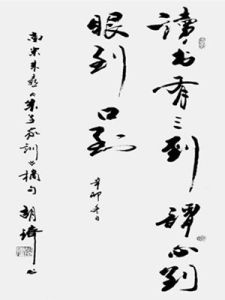 读书有三到 谭心到
眼到 口到
辛卯年春日
南宋朱熹《朱子家训》摘句 胡